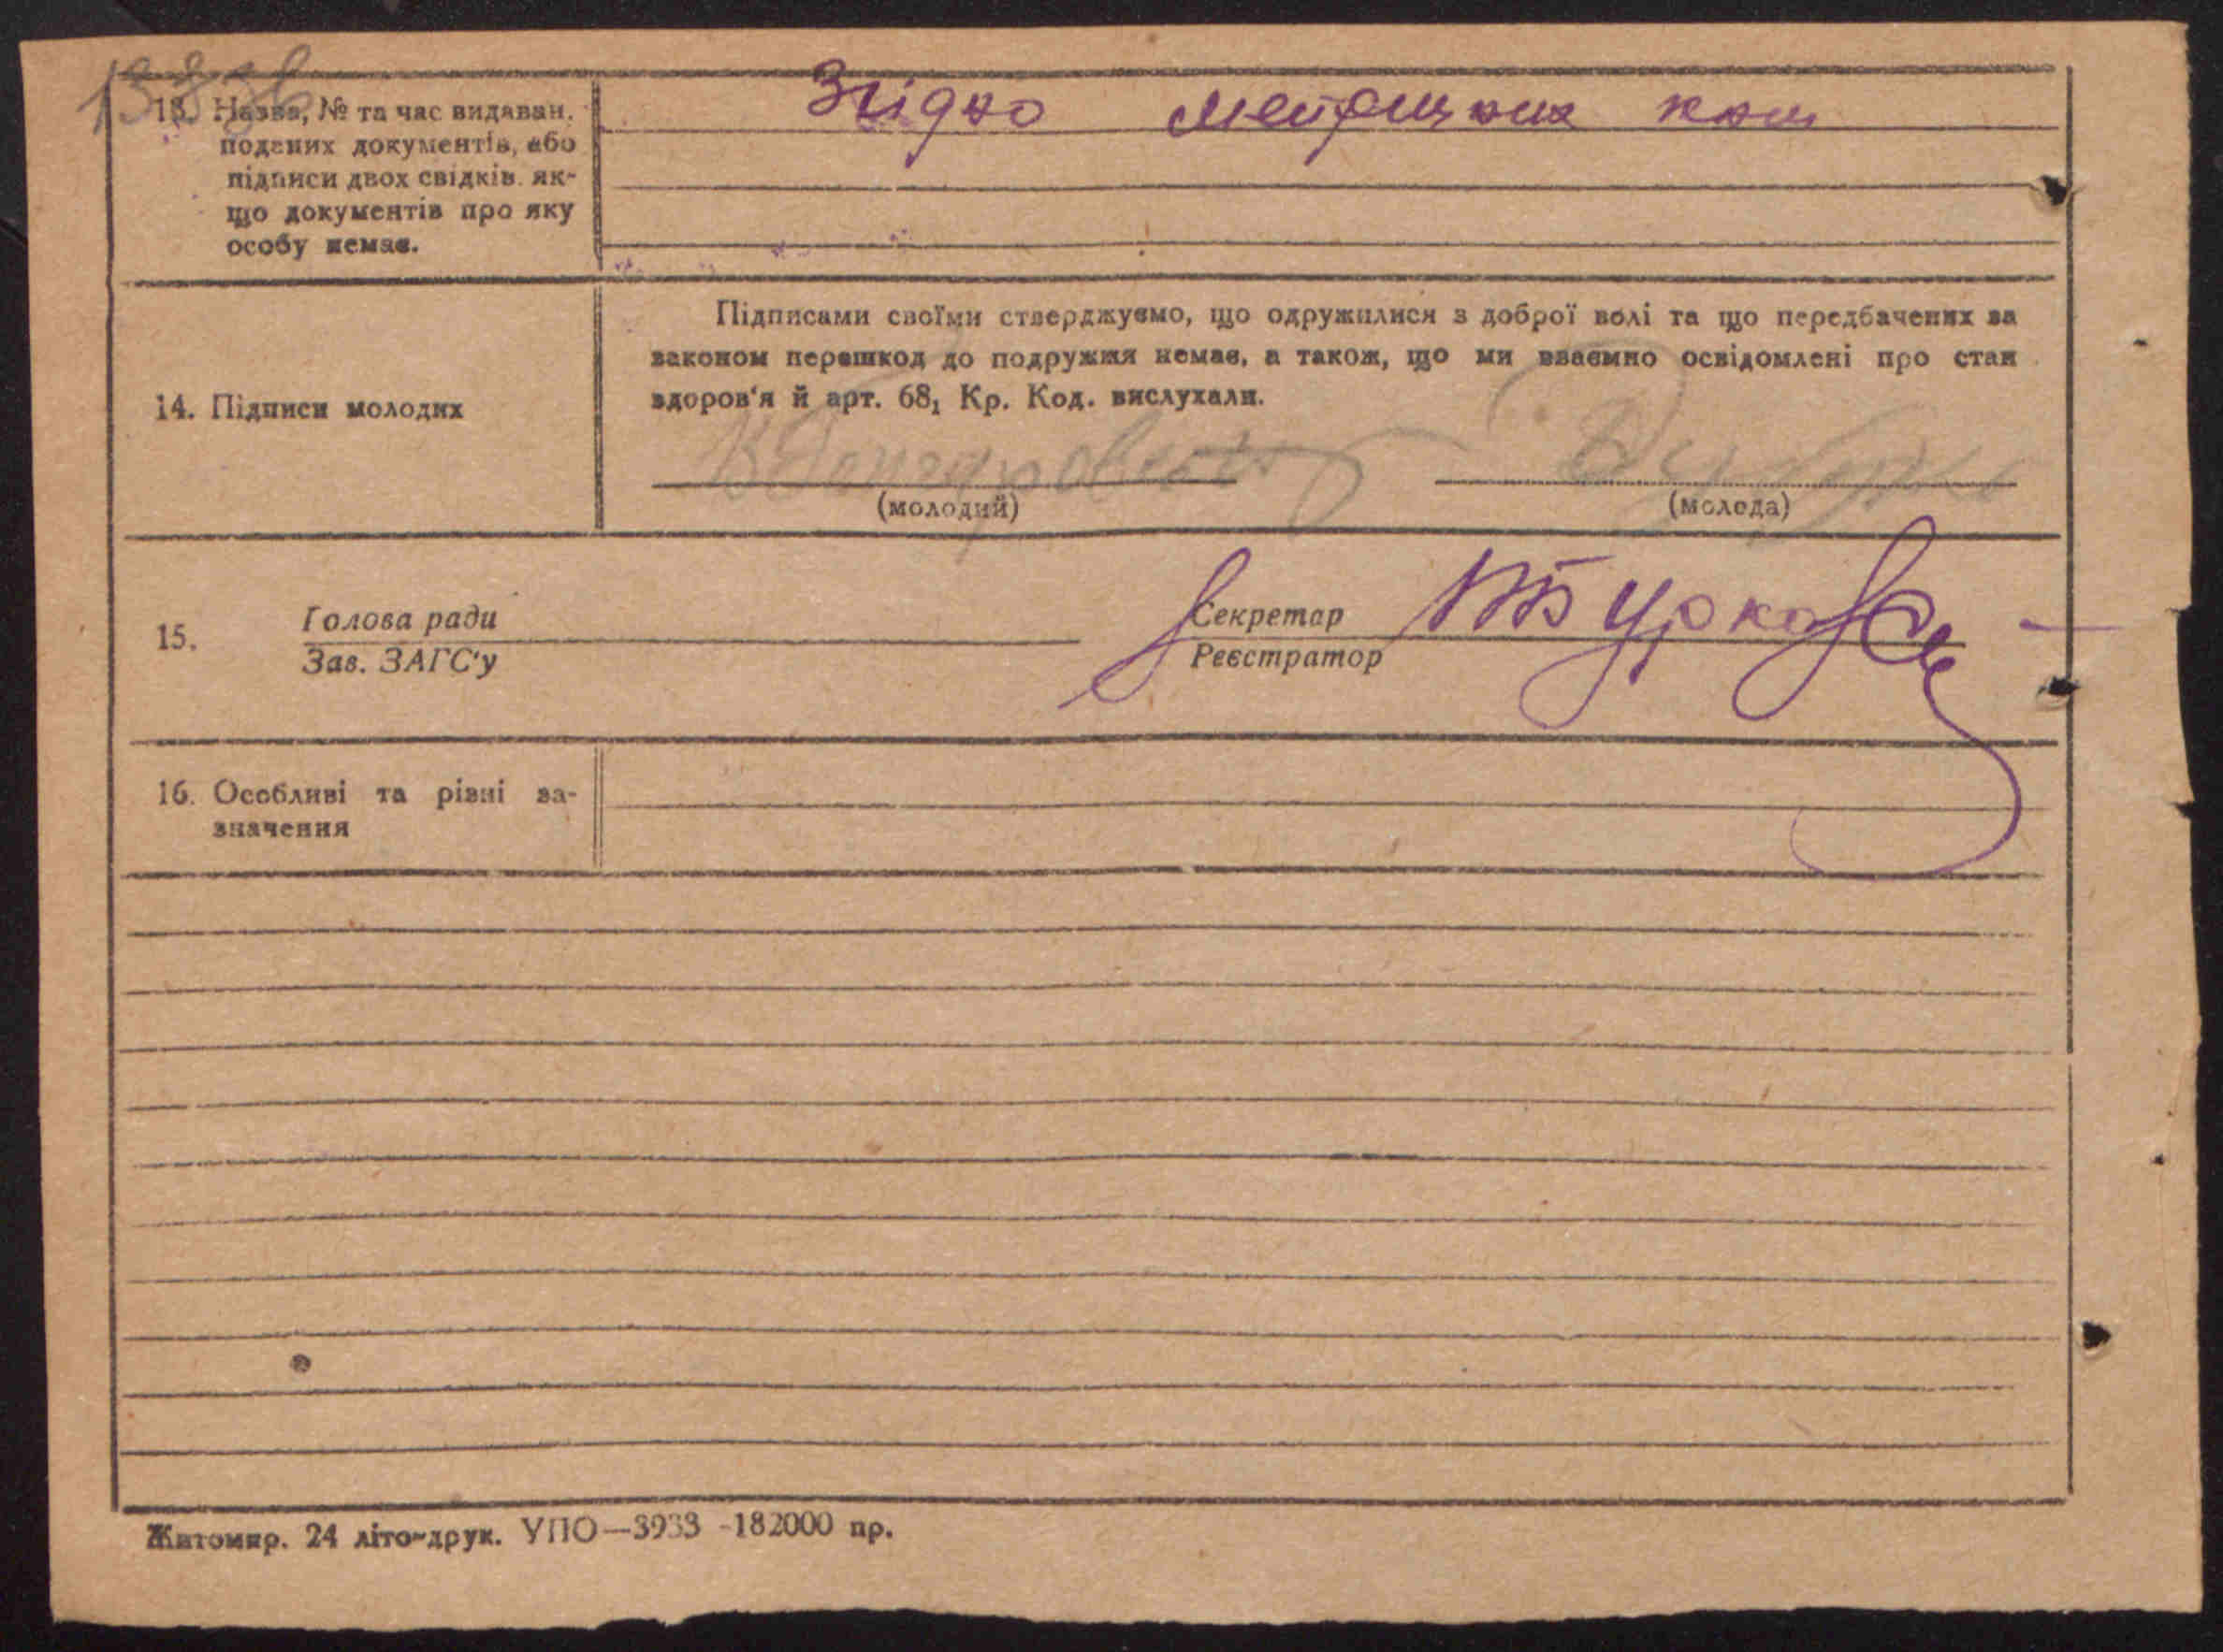 13. Назва, № та час видаван.
поданих документів, або
підписи двох свідків, як-
що документів про яку
особу немає.
Згідно метрицких
14. Підписи молодих
Підписами своїми стверджуємо, що одружилися з доброї волі та що передбачених за
законом перешкод до подружжя немає, а також, що ми взаємно освідомлені про стан
здоров'я й арт. 68₁ Кр. Код. вислухали.
(молодий)
(молода)
15.
Голова ради
Зав. ЗАГС'у
Секретар
Реєстратор
16. Особливі та різні за-
значення
Житомир. 24 літо-друк. УПО—3933 -182000 пр.